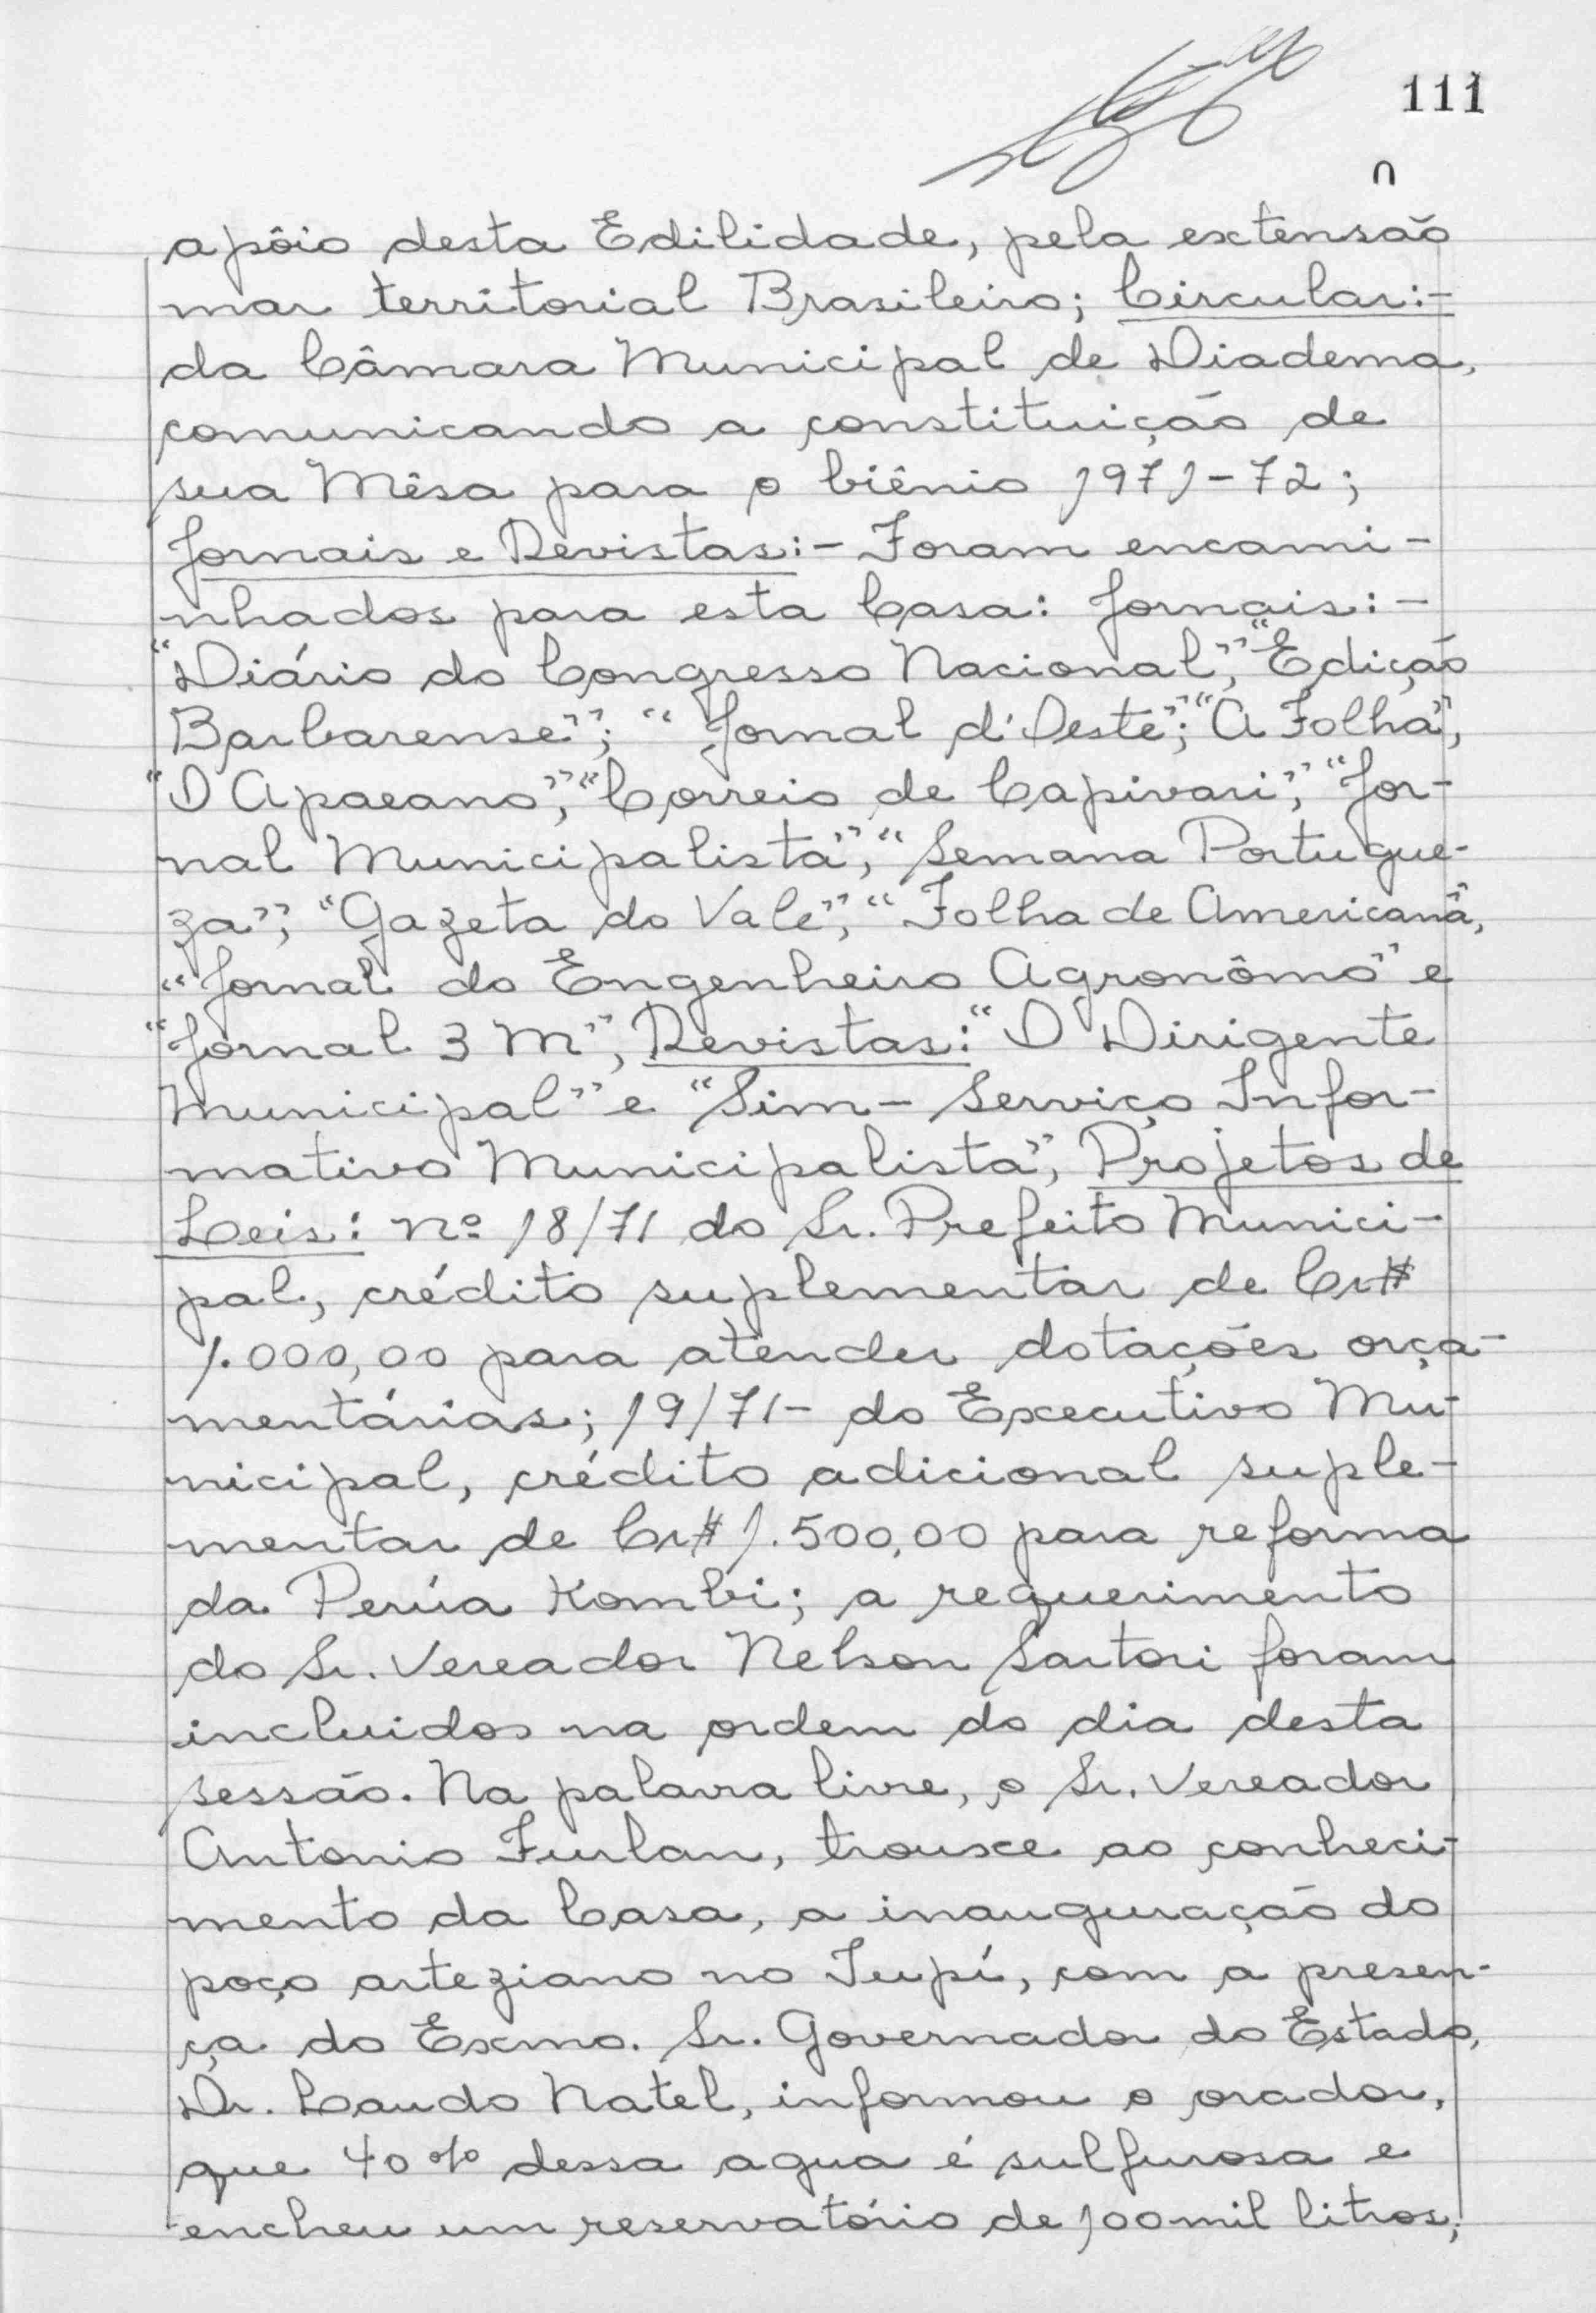 111
apôio desta Edilidade, pela extensão
mar territorial Brasileiro; Circular:-
da Câmara Municipal de Diadema,
comunicando a constituição de
sua Mêsa para o biênio 1971-72;
Jornais e Revistas:- Foram encami-
nhados para esta Casa: Jornais:-
"Diário do Congresso Nacional", "Edição
Barbarense"; "Jornal d'Oeste"; "A Folha",
"O Apaeano", "Correio de Capivari", "Jor-
nal Municipalista", "Semana Portugue-
za", "Gazeta do Vale", "Folha de Americana",
"Jornal do Engenheiro Agronômo" e
"Jornal 3 M", Revistas: "O Dirigente
Municipal" e "Sim - Serviço Infor-
mativo Municipalista", Projetos de
Leis: nº 18/71 do Sr. Prefeito Munici-
pal, crédito suplementar de Cr$
1.000,00 para atender dotações orça-
mentárias; 19/71- do Executivo Mu-
nicipal, crédito adicional suple-
mentar de Cr$ 1.500,00 para reforma
da Perúa Kombi; a requerimento
do Sr. Vereador Nelson Sartori foram
incluidos na ordem do dia desta
sessão. Na palavra livre, o Sr. Vereador
Antonio Furlan, trouxe ao conheci-
mento da Casa, a inauguração do
poço arteziano no Tupí, com a presen-
ça do Exmo. Sr. Governador do Estado,
Dr. Laudo Natel, informou o orador,
que 40% dessa agua é sulfurosa e
encheu um reservatório de 100 mil litros;